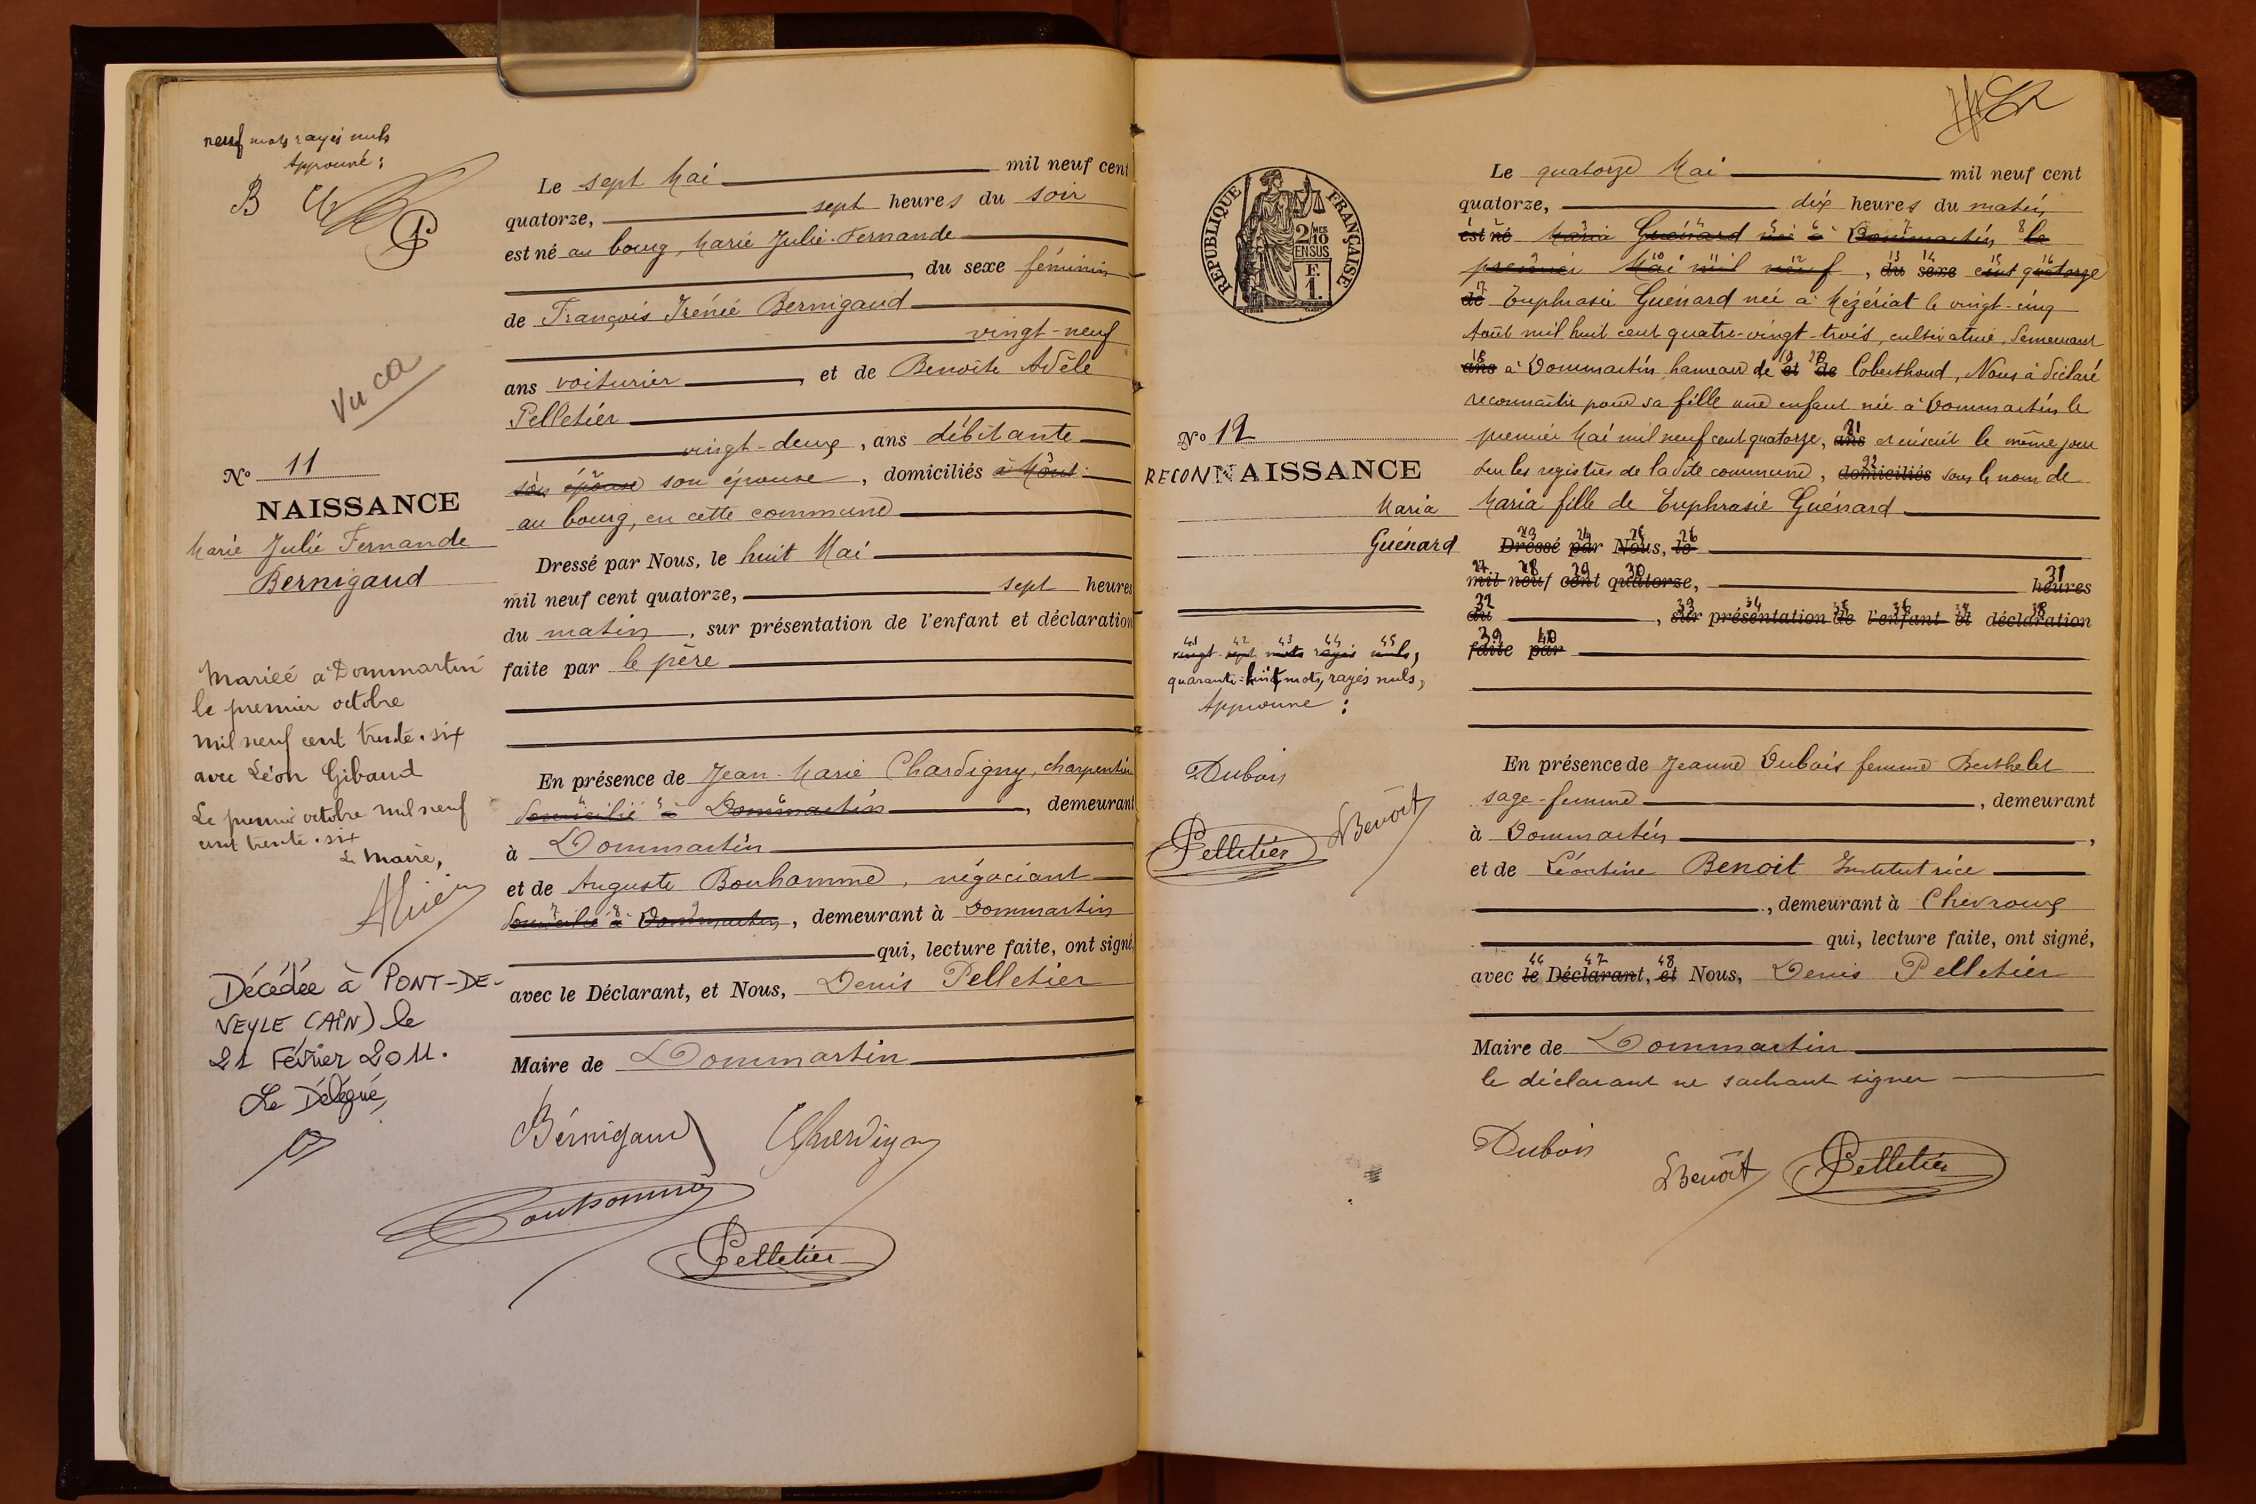 neuf mots rayés nuls
Approuvé :
B
Vu ca
N° 11
NAISSANCE
Marie Julie Fernande
Bernigaud
Mariée à Dommartin
le premier octobre
mil neuf cent trente-six
avec Léon Gibaud
Le premier octobre mil neuf
cent trente-six
Le Maire,
Décédée à PONT-DE-
VEYLE (AIN) le
21 Février 2011.
Le Délégué,
Le sept Mai mil neuf cent
quatorze, sept heures du soir
est né au bourg, Marie Julie Fernande
, du sexe féminin
de François Irénée Bernigaud
vingt-neuf
ans voiturier , et de Benoite Adèle
Pelletier
vingt-deux , ans débitante
son épouse son épouse , domiciliés
au bourg, en cette commune
Dressé par Nous, le huit Mai
mil neuf cent quatorze, sept heures
du matin , sur présentation de l'enfant et déclaration
faite par le père
En présence de Jean-Marie Chardigny, charpentier
domicilié à Dommartin , demeurant
à Dommartin
et de Auguste Bonhomme, négociant
domicilié à Dommartin , demeurant à Dommartin
qui, lecture faite, ont signé
avec le Déclarant, et Nous, Denis Pelletier
Maire de Dommartin
Bérnigaud Chardigny
Bonhomme
Pelletier
RÉPUBLIQUE FRANÇAISE
2/10
MES
EN SUS
F.
1.
N° 12
RECONNAISSANCE
Maria
Guénard
41 42 43 44 45
vingt-sept mots rayés nuls,
quarante-huit mots, rayés nuls,
Approuvé :
Dubois
Pelletier LBenoît
Le quatorze Mai mil neuf cent
quatorze, dix heures du matin
est né Maria Guénard née à Dommartin 8 le
premier Mai mil neuf , du sexe cent quatorze
de Euphrasie Guénard née à Mézériat le vingt-cinq
Août mil huit cent quatre-vingt-trois, cultivatrice, demeurant
ans à Dommartin, hameau de et de Coberthoud, Nous a déclaré
reconnaître pour sa fille une enfant née à Dommartin le
premier Mai mil neuf cent quatorze, ans et inscrit le même jour
sur les registres de la dite commune, domiciliés sous le nom de
Maria fille de Euphrasie Guénard
23 24 25 26
Dressé par Nous, le
27 28 29 30 31
mil neuf cent quatorze, heures
32 33 34 35 36 37 38
du , sur présentation de l'enfant et déclaration
39 40
faite par
En présence de Jeanne Dubois femme Berthelet
sage-femme , demeurant
à Dommartin ,
et de Léontine Benoit Institutrice
, demeurant à Chevroux
qui, lecture faite, ont signé,
46 47 48
avec le Déclarant, et Nous, Denis Pelletier
Maire de Dommartin
le déclarant ne sachant signer
Dubois
LBenoît Pelletier